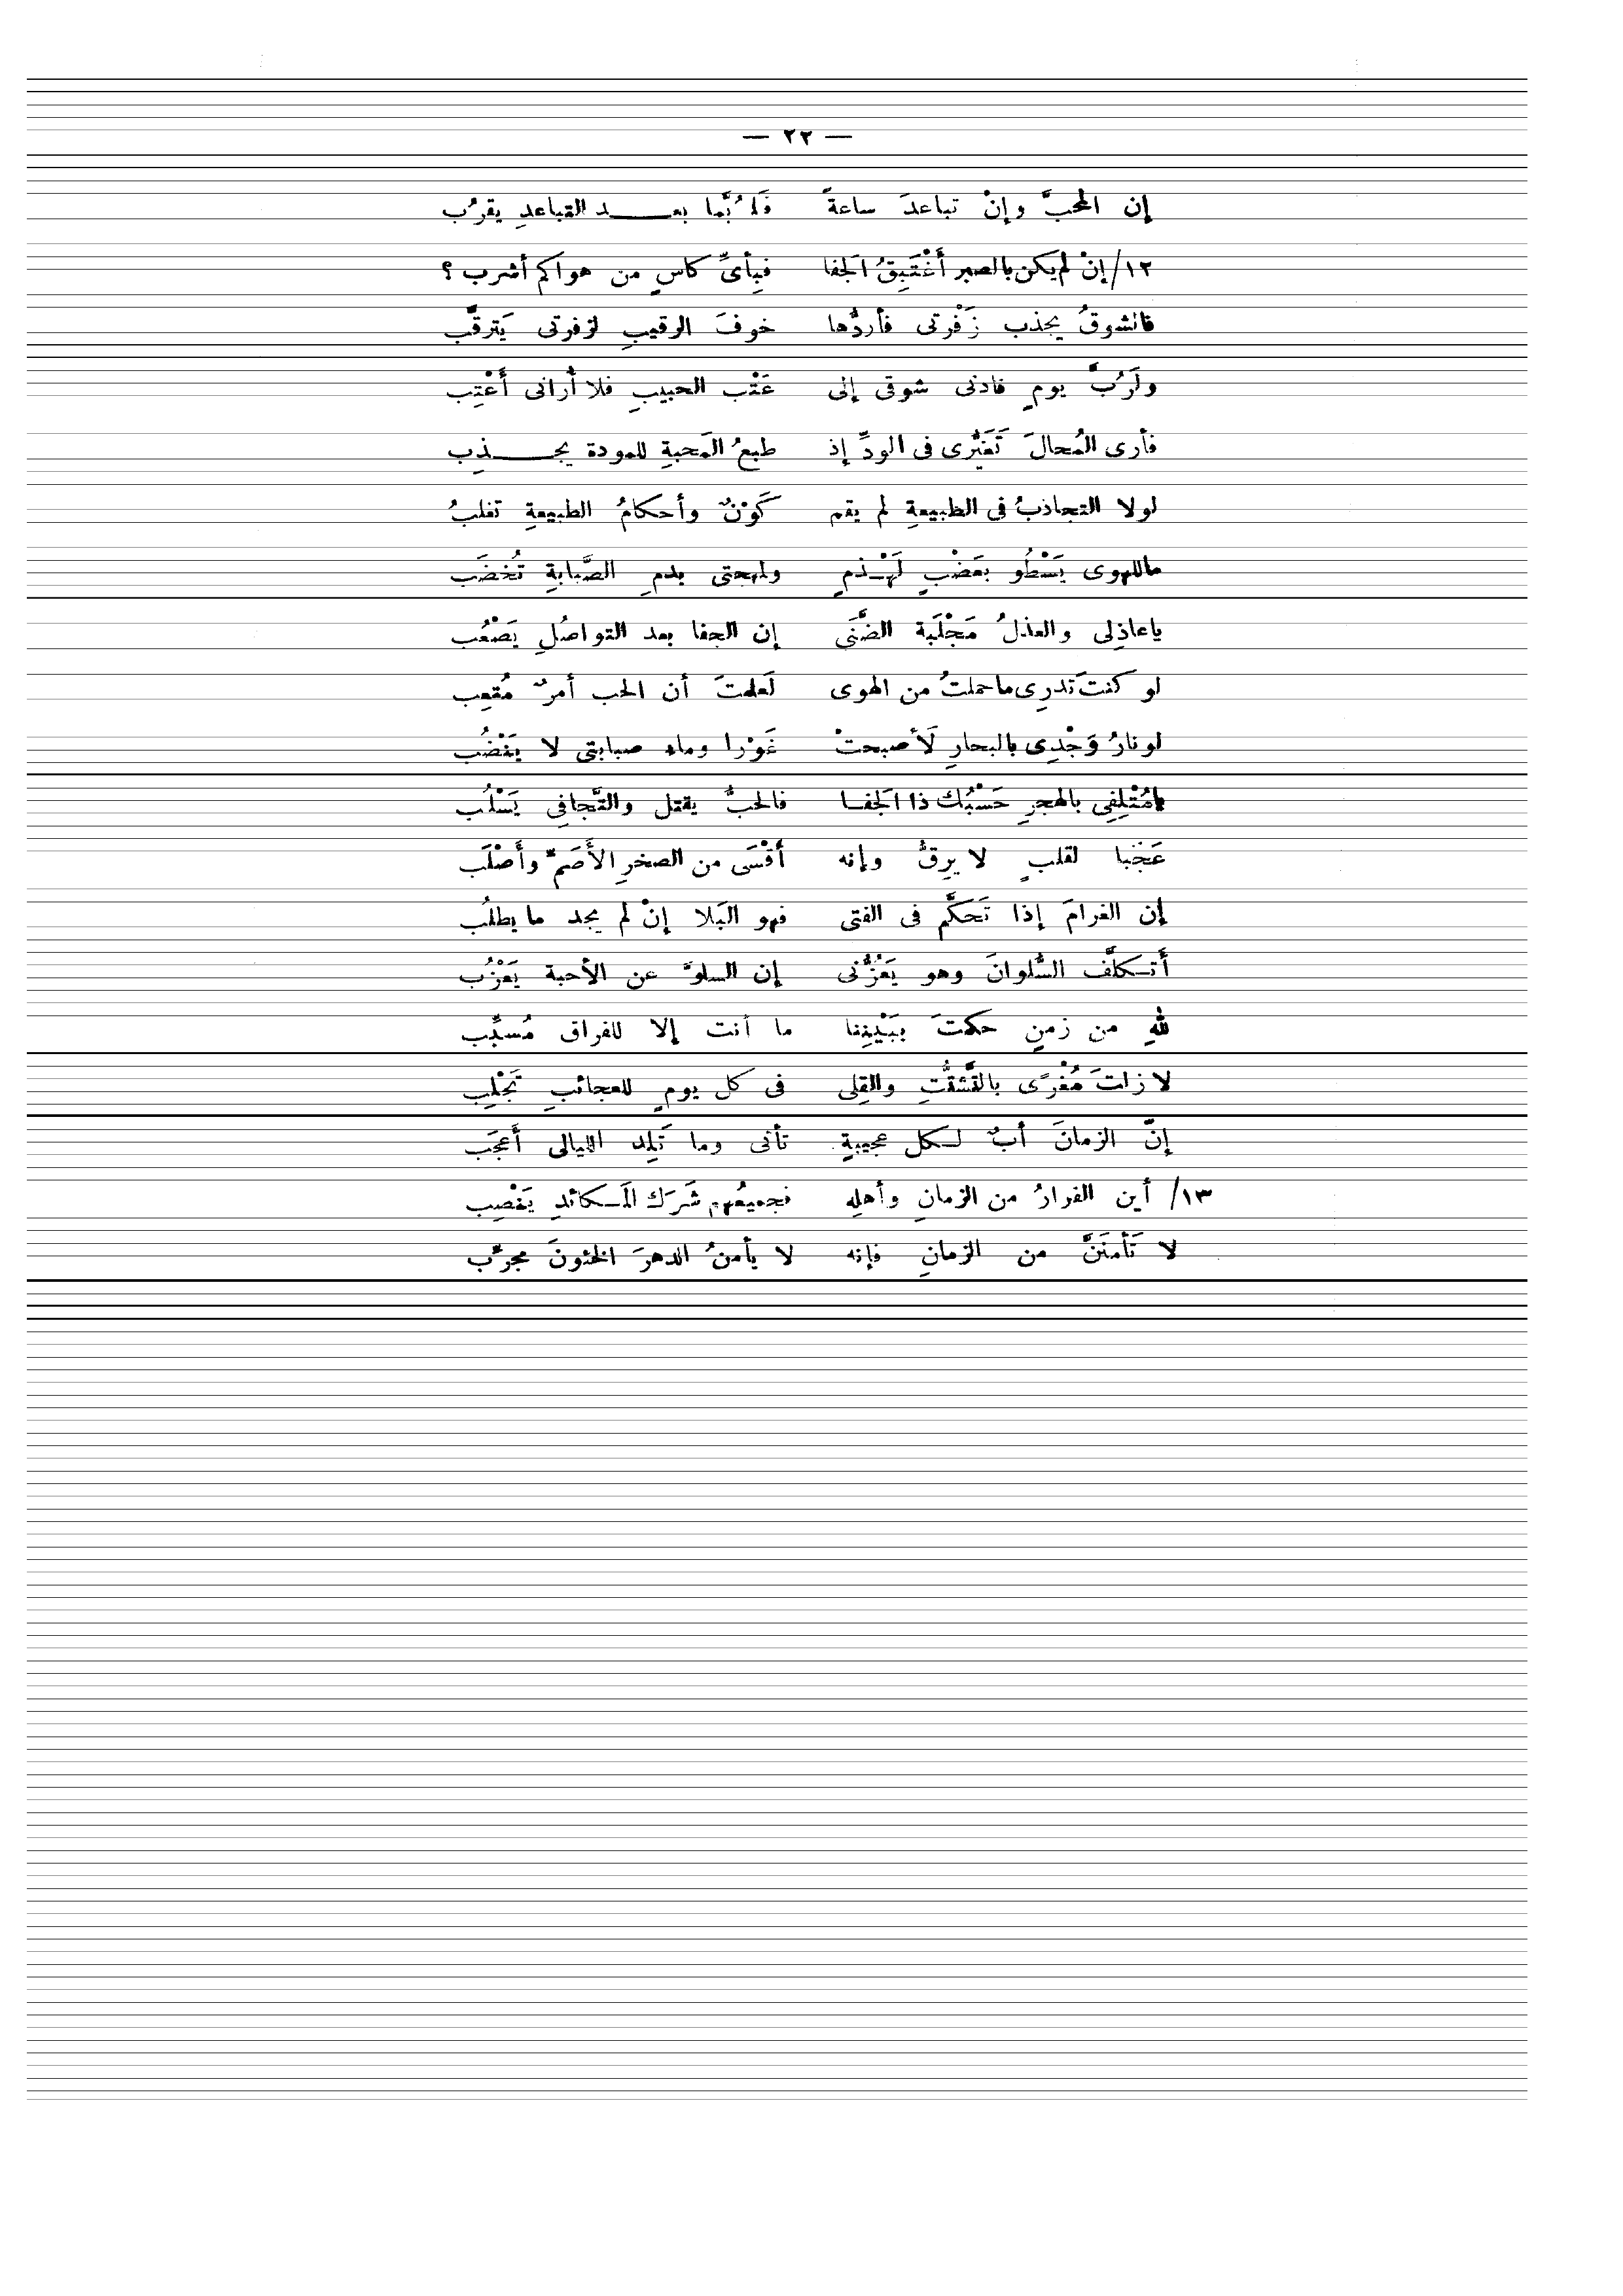 — ٢٢ —
إن المحبَّ وإنْ تباعدَ ساعةً فَلَرُبَّما بعد التباعدِ يقرُب
١٢/ إنْ لم يكن بالصبر أَغْتَبِقُ الَجفا فبِأىِّ كاسٍ من هواكم أشرب ؟
فالشوقُ يجذب زَفْرتى فأردُّها خوفَ الرقيبِ لزفرتى يَترقَّب
ولَرُبَّ يومٍ قادنى شوقى إلى عَتْب الحبيبِ فلا أُرانى أَعْتِب
فأرى المُحالَ تَغَيُّرى فى الودِّ إذ طبعُ المَحبةِ للمودة يجذِب
لولا التجاذبُ فى الطبيعةِ لم يقم كَوْنٌ وأحكامُ الطبيعةِ تغلبُ
ماللهوى يَسْطُو بعَضْبٍ لَهْذمٍ ولمهجتى بدمِ الصَّبابةِ تُخضَب
ياعاذِلى والعذلُ مَجْلَبة الضَّنَى إن الجفا بعد التواصُلِ يَصْعُب
لو كنتَ تدرِى ماحملتُ من الهوى لَعلمتَ أن الحب أمرٌ مُتعِب
لو نارُ وَجْدِى بالبحارِ لَأصبحتْ غَوْرا وماء صبابتى لا يَنْضُب
يامُتْلِفِى بالهجرِ حَسْبُك ذا الَجفا فالحبُّ يقتل والتَّجافِى يَسْلُب
عَجَبا لقلبٍ لا يرِقُّ وإنه أَقْسَى من الصخرِ الأَصَمِّ وأَصْلَب
إن الغرامَ إذا تَحَكَّم فى الفتى فهو البَلا إنْ لم يجد ما يطلُب
أَتكلَّف السُّلوانَ وهو يَعُزُّنى إن السلوَّ عن الأحبة يَعْزُب
للهِ من زمنٍ حكمتَ ببَيْنِنا ما أنت إلا للفراق مُسبِّب
لا زلتَ مُغْرًى بالتَّشتُّتِ والقِلى فى كل يومٍ للعجائبِ تَجْلِب
إنّ الزمانَ أبٌ لكل عجيبةٍ تأتى وما تَلِد الليالى أَعجَب
١٣/ أين الفرارُ من الزمانِ وأهلِه فجميعُهم شَرَك المَكائدِ يَنْصِب
لا تَأمنَنَّ من الزمانِ فإنه لا يأمنُ الدهرَ الخئونَ مجرِّب